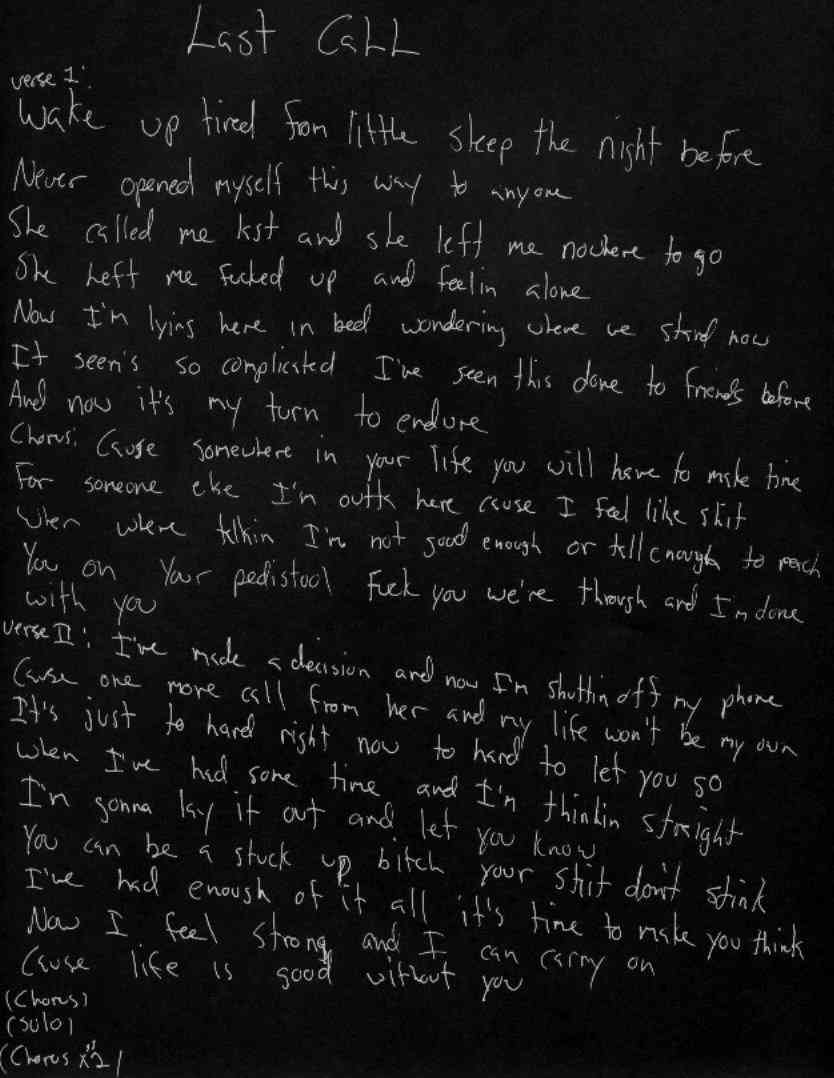 Last Call
verse 1:
Wake up tired from little sleep the night before
Never opened myself this way to anyone
She called me last and she left me nowhere to go
She Left me fucked up and feelin alone
Now I'm lying here in bed wondering where we stand now
It seem's so complicated I've seen this done to friends before
And now it's my turn to endure
Chorus: Cause somewhere in your life you will have to make time
For someone else I'm outta here cause I feel like shit
When where talkin I'm not good enough or tall enough to reach
You on your pedistool Fuck you we're through and I'm done
with you
verse II: I've made a decision and now I'm shuttin off my phone
Cause one more call from her and my life won't be my own
It's just to hard right now to hard to let you go
when I've had some time and I'm thinkin straight
I'm gonna lay it out and let you know
You can be a stuck up bitch your shit don't stink
I've had enough of it all it's time to make you think
Now I feel strong and I can carry on
Cause life is good without you
(Chorus)
(solo)
(Chorus x"2)